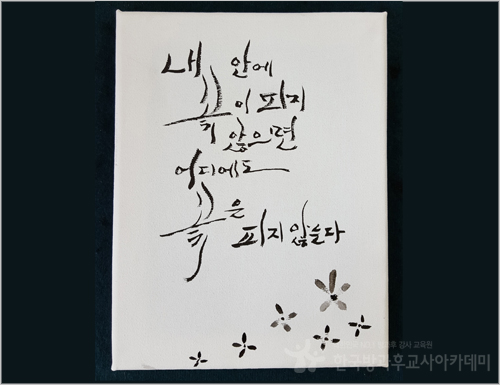 내 안에
꽃이 피지
않으면
어디에도
꽃은
피지 않는다
한국방과후교사아카데미